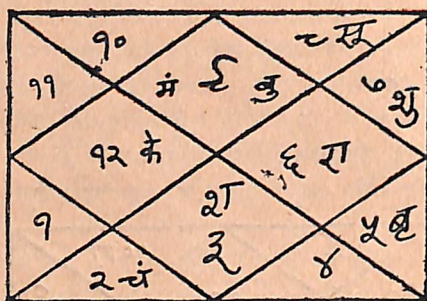 १०
८ सू
११
मं ९ बु
७ शु
१२ के
६ रा
श
३
१
५ बृ
२ चं
४